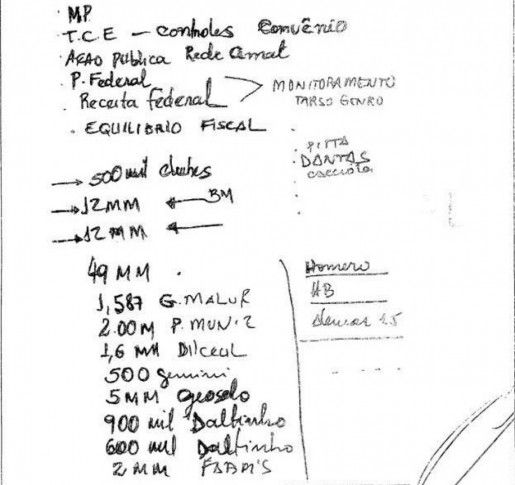 . MP
. T.C.E - controles Convênio
. AÇÃO PÚBLICA Rede Cemat
. P. Federal
. Receita federal
MONITORAMENTO
TARSO GENRO
. EQUILIBRIO FISCAL
. PITTA
. DANTAS
. cacciola
→ 500 mil cheches
→ 12MM ← BM
→ 12 MM ←
49 MM .
1,587 G. MALUR
2.00M P. MUNIZ
1,6 MM Dilceul
500 Gemini
5 MM Geosolo
900 mil Daltinho
600 mil Daltinho
2 MM FSAM'S
Homero
HB